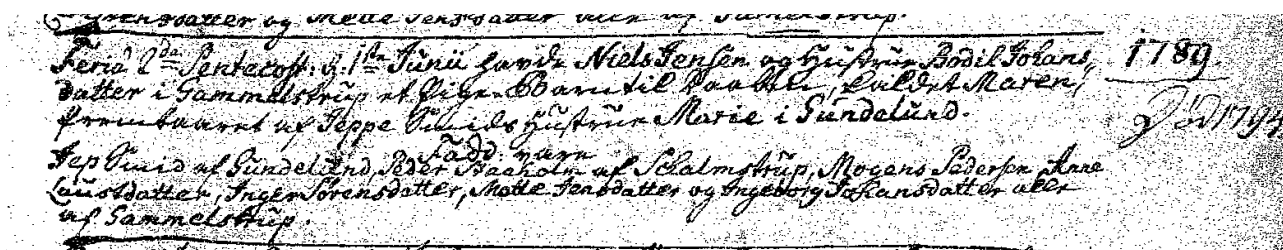 Sørensdatter og Mette Jensdatter alle af Gamelstrup.
Feria 2da Pentecost: d. 1ste Junii havde Niels Jensen og Hustrue Bodil Johans,
datter i Gammelstrup et Pige-Barn til Daaben, kaldet Maren,
frembaaret af Jeppe Smids Hustrue Marie i Gundelund.
Fadd: vare
Jep Smid af Gundelund, Peder Staxholm af Schalmstrup, Mogens Pedersen, Anne
Laustdatter, Inger Sørensdatter, Mette Jensdatter og Ingeborg Johansdatter alle
af Gammelstrup.
1789
Død 1794